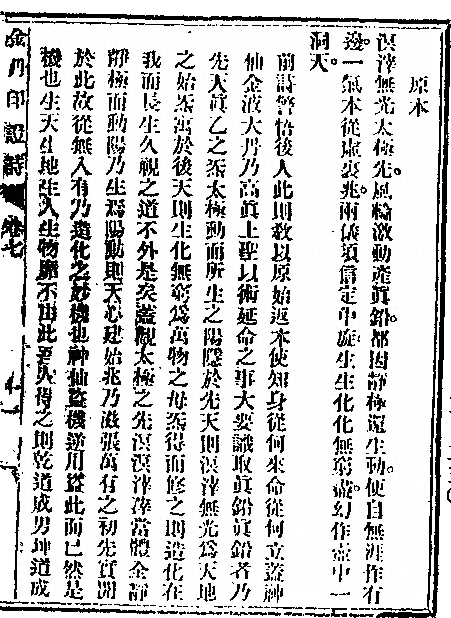 原本
溟涬無光太極先。風輪激動產眞鉛。都因靜極還生動。便自無涯作有
邊。一氣本從虛裏兆。兩儀須信定中旋。生生化化無窮盡。幻作壺中一
洞天。
前詩警悟後人此則敎以原始返本使知身從何來命從何立蓋神
仙金液大丹乃高眞上聖以術延命之事大要識取眞鉛眞鉛者乃
先天眞乙之炁太極動而所生之陽隱於先天則溟涬無光爲天地
之始炁寓於後天則生化無窮爲萬物之母炁得而修之則造化在
我而長生久視之道不外是矣蓋觀太極之先溟溟涬涬當體全靜
靜極而動陽乃生焉陽動則天心建始兆乃滋張萬有之初先實開
於此故從無入有乃造化之妙機也神仙盜機逆用從此而已然是
機也生天生地生人生物罔不由此至人得之則乾道成男坤道成
金丹印證詩 卷七